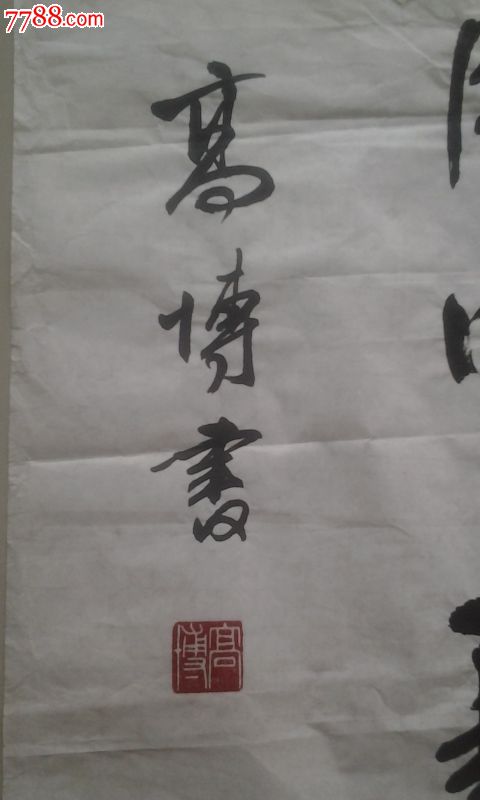 7788.com
高博書
高博